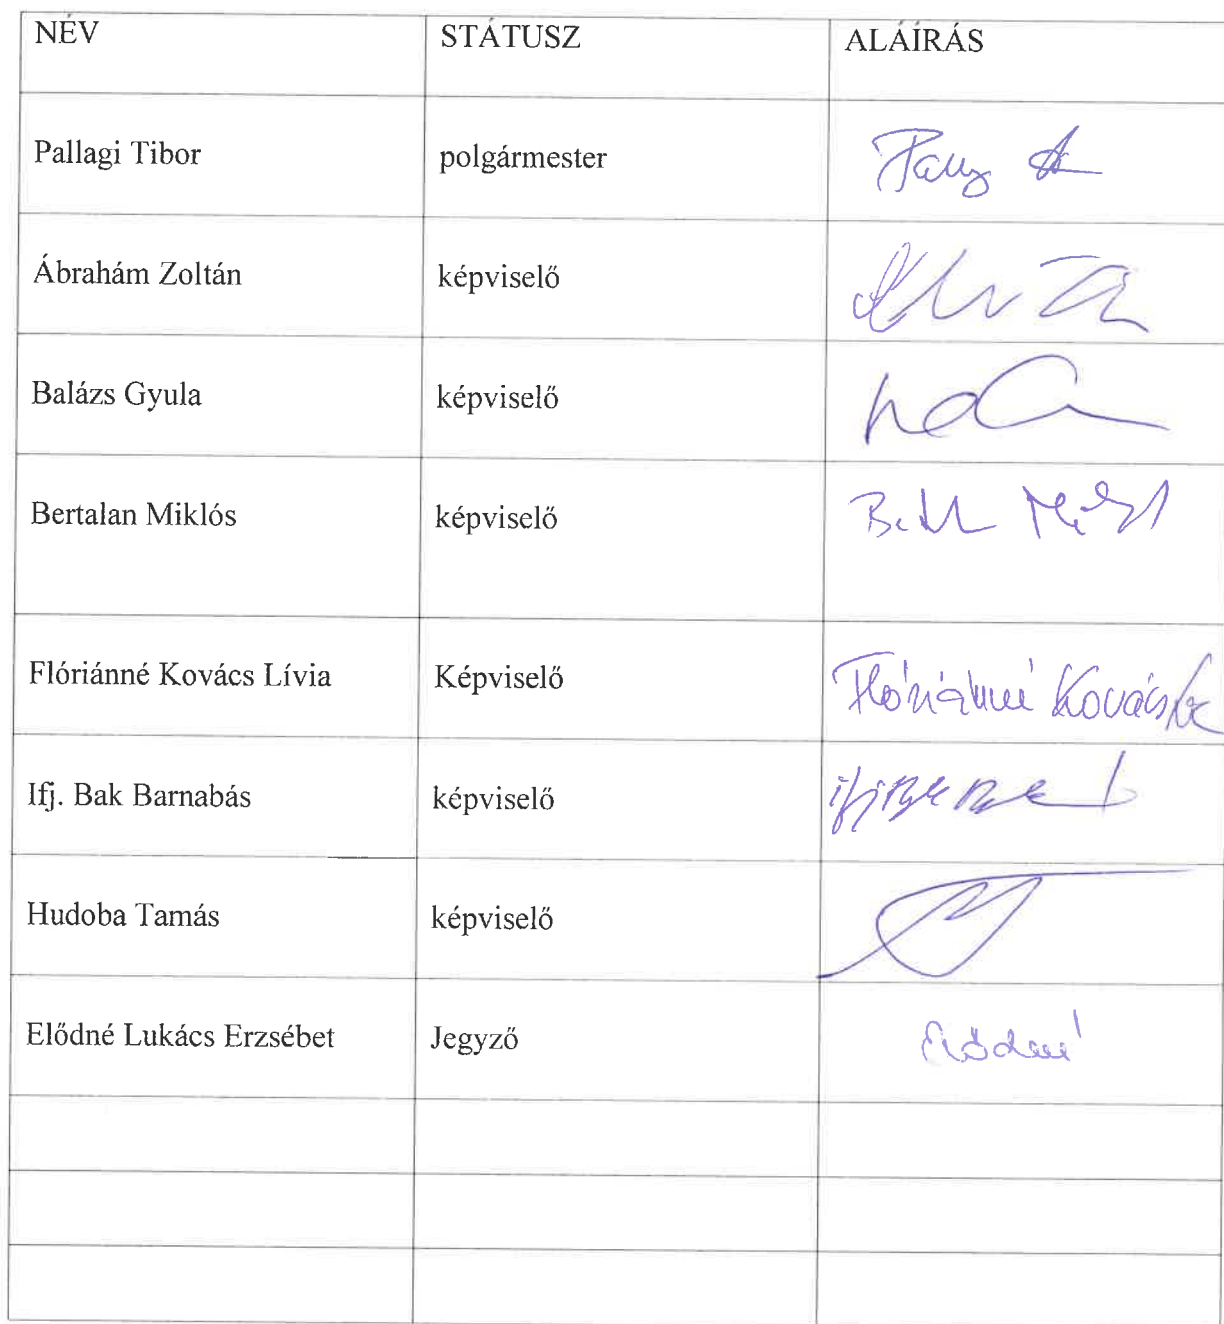 NÉV STÁTUSZ ALÁÍRÁS
Pallagi Tibor polgármester
Ábrahám Zoltán képviselő
Balázs Gyula képviselő
Bertalan Miklós képviselő
Flóriánné Kovács Lívia Képviselő Flóriánné Kovács
Ifj. Bak Barnabás képviselő
Hudoba Tamás képviselő
Elődné Lukács Erzsébet Jegyző Elődné